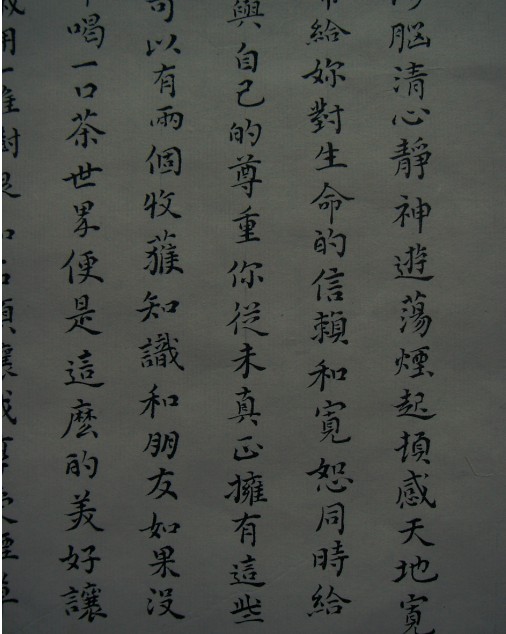 脑清心靜神遊蕩煙起頓感天地寬
給妳對生命的信賴和寬恕同時給
與自己的尊重你從未真正擁有這些
可以有兩個收獲知識和朋友如果沒
喝一口茶世界便是這麼的美好讓